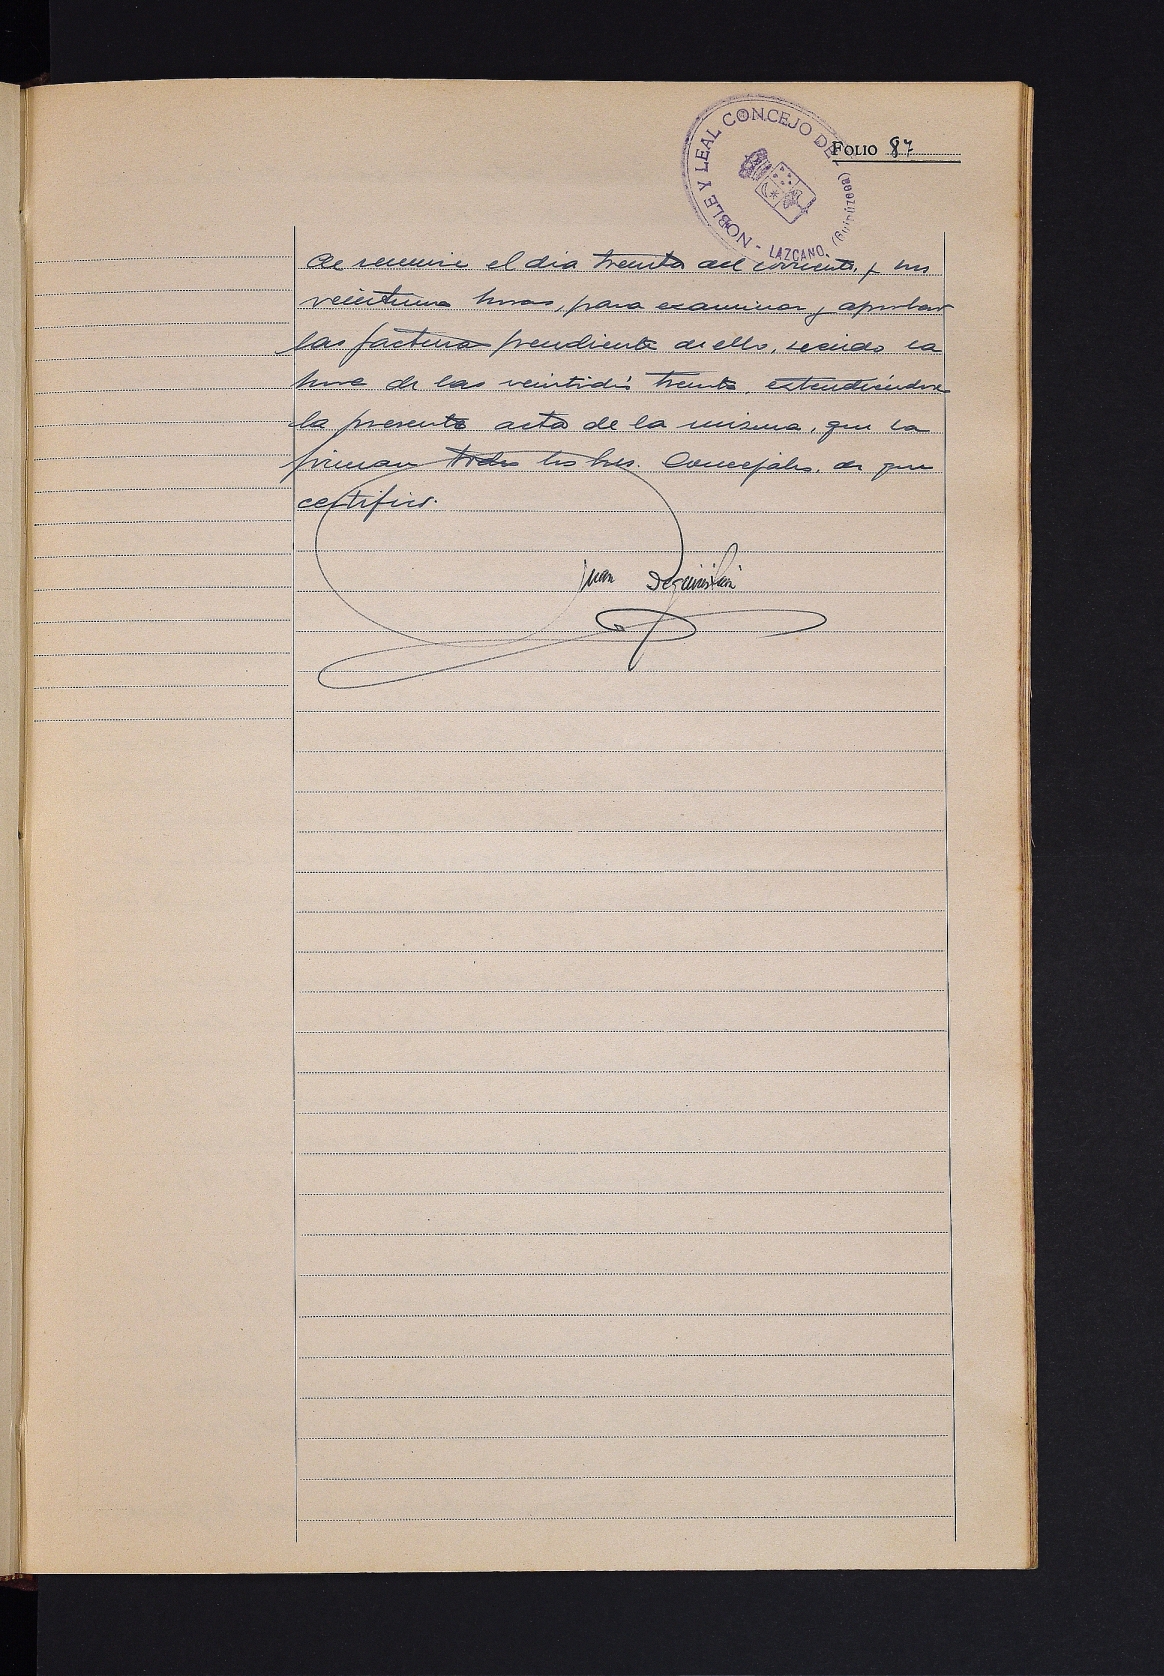 NOBLE Y LEAL CONCEJO DE
LAZCANO. (Guipúzcoa)
FOLIO 87
de reunirse el dia treinta del corriente, y sus
veintiuna horas, para examinar y aprobar
las facturas pendientes de ello, siendo la
hora de las veintidós treinta, extendiéndose
la presente acta de la misma, que la
firman todos los Sres. Concejales, de que
certifico.
Juan